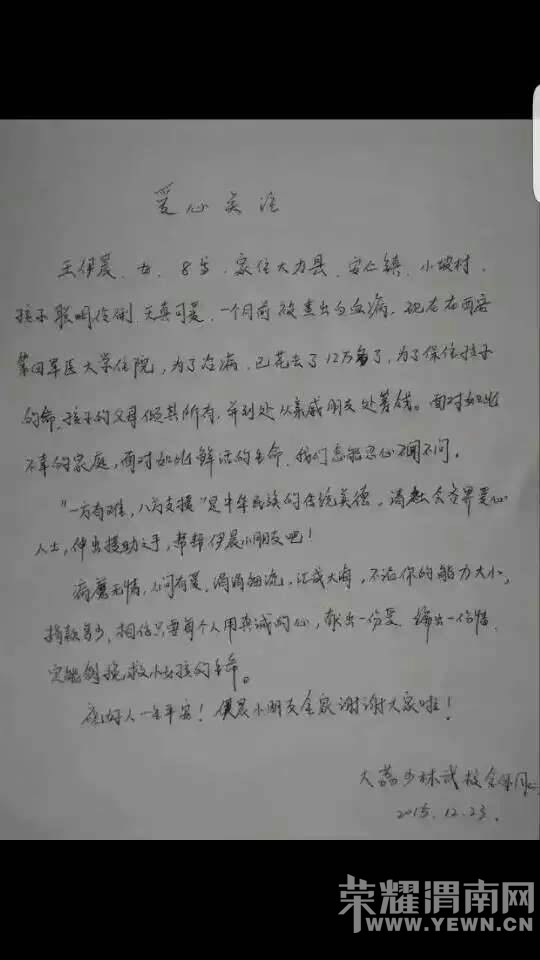 爱心关注
王伊晨、女、8岁、家住大力县、安仁镇、小坡村，
孩子聪明伶俐 天真可爱、一个月前被查出白血病，现在在西安
第四军医大学住院，为了治病，已花去了12万多了，为了保住孩子
的命，孩子的父母倾其所有，并到处从亲戚朋友处筹钱。面对如此
不幸的家庭，面对如此鲜活的生命、我们怎能忍心不闻不问。
"一方有难，八方支援"是中华民族的传统美德，请社会各界爱心
人士，伸出援助之手，帮帮伊晨小朋友吧！
病魔无情，人间有爱、涓涓细流，汇成大海，不论你的能力大小，
捐款多少，相信只要每个人用真诚的心，献出一份爱、 一份情，
定能 挽救小女孩的生命。
祝好人一生平安！伊晨小朋友全家谢谢大家啦！
大荔少林武校全体同
2015.12.23.
荣耀渭南网
WWW.YEWN.CN